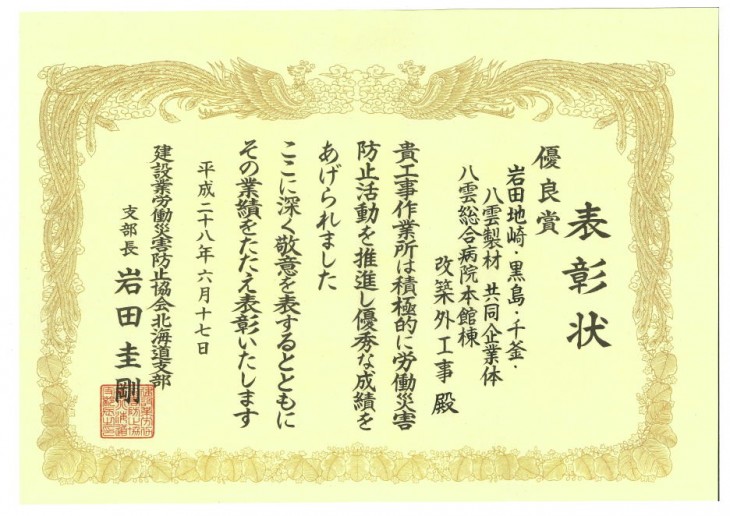 表彰状
優良賞
岩田地崎・黒島・千釜・
八雲製材 共同企業体
八雲総合病院本館棟
改築外工事 殿
貴工事作業所は積極的に労働災害
防止活動を推進し優秀な成績を
あげられました
ここに深く敬意を表するとともに
その業績をたたえ表彰いたします
平成二十八年六月十七日
建設業労働災害防止協会北海道支部
支部長 岩田圭剛